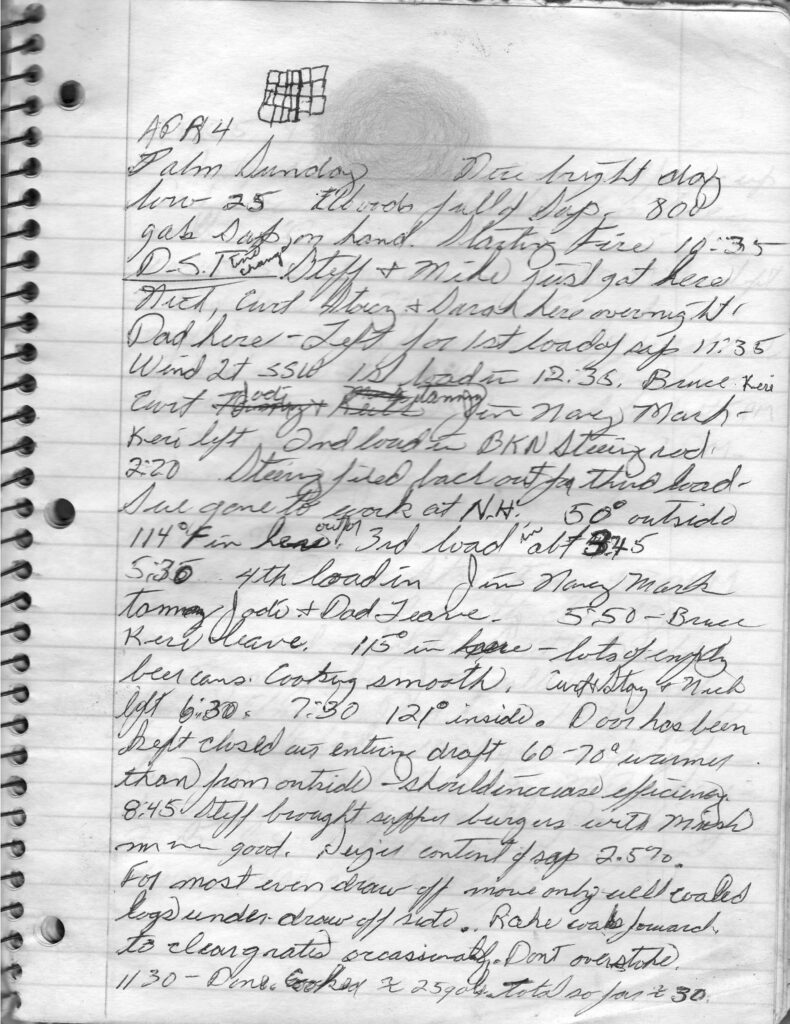 APR 4
Palm Sunday Nice bright day
low 25 Woods full of Sap. 800
gals Sap on hand. Starting Fire 10:35
D.S.T time change Steff & Mike just got here
Nick, Curt Stacy & Sarah here overnight.
Dad here - Left for 1st load of sap 11:35
Wind Lt SSW 1st load in 12:35. Bruce Keri
Curt Jodi Tammy Jim Nancy Mark -
Keri left 2nd load in BKN Steering rod
2:20 Steering fixed back out for third load -
Sue gone to work at N.H. 50° outside
114°F in here out for 3rd load in abt 3:45
5:35 4th load in Jim Nancy Mark
tammy Jodi & Dad Leave. 5:50 - Bruce
Keri leave. 115° in here - lots of empty
beer cans. Cooking smooth. Curt Stacy & Nick
left 6:30. 7:30 121° inside. Door has been
kept closed air entering draft 60-70° warmer
than from outside - should increase efficiency.
8:45 Steff brought supper burgers with Mush
mmm good. Sugar content of sap 2.5%.
For most even draw off move only well coaled
logs under draw off side.. Rake coals forward
to clear grates occasionally. Dont overstoke.
11 30 - Done. Cooked ≈ 25 gals. total so far ≈ 30.